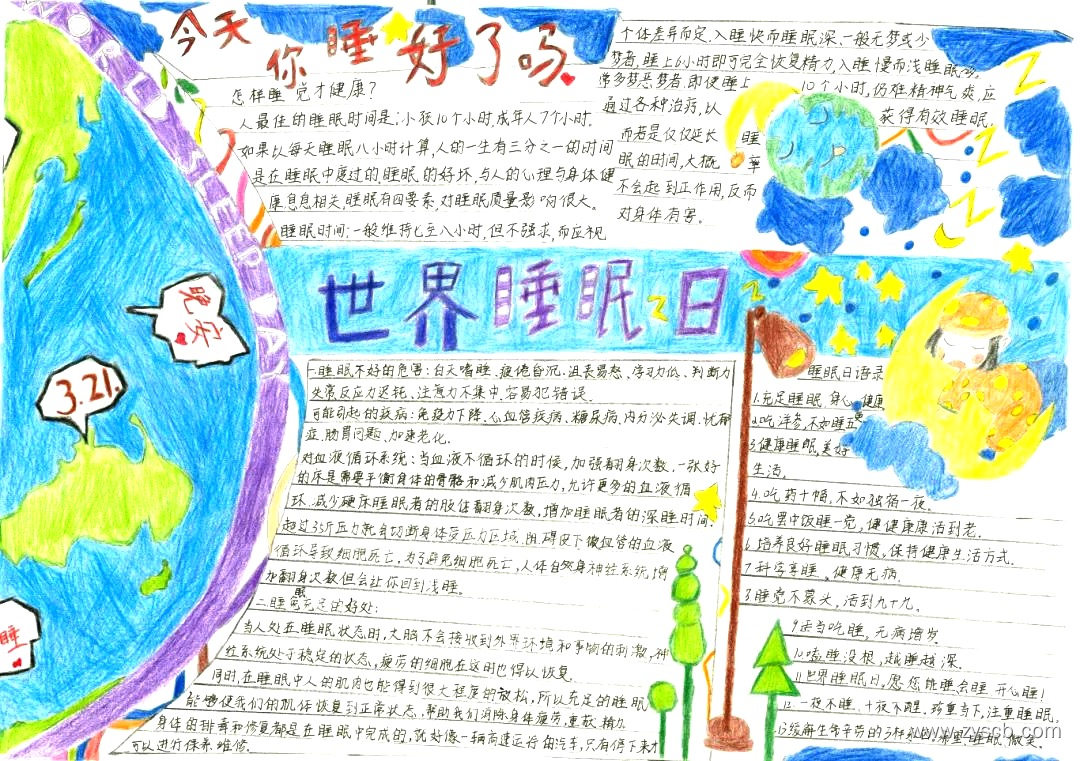 今天你睡好了吗
怎样睡觉才健康?
人最佳的睡眠时间是:小孩10个小时,成年人7个小时.
如果以每天睡眠八小时计算,人的一生有三分之一的时间
是在睡眠中度过的,睡眠的好坏,与人的心理与身体健
康息息相关,睡眠有四要素,对睡眠质量影响很大。
睡眠时间:一般维持七至八小时,但不强求,而应视
个体差异而定、入睡快而睡眠深、一般无梦或少
梦者,睡上6小时即可完全恢复精力,入睡慢而浅睡眠多、
常多梦恶梦者,即使睡上10个小时,仍难精神气爽,应
通过各种治药,以获得有效睡眠.
而若是仅仅延长
眠的时间,大概
不会起到正作用,反而
对身体有害。
睡
世界睡眠日
晚安
3.21.
睡
一.睡眠不好的危害:白天嗜睡、疲倦自沉、沮丧易怒、学习力低、判断力
失常反应力迟钝、注意力不集中,容易犯错误。
可能引起的疾病:免疫力下降、心血管疾病、糖尿病,内分泌失调、忧郁
症,肠胃问题、加速老化.
对血液循环系统:当血液不循环的时候,加强翻身次数,一张好
的床是需要平衡身体的骨骼和减少肌肉压力,允许更多的血液循
环.减少硬床睡眠者的肢体翻身次数,增加睡眠者的深睡时间.
超过35斤压力就会切断身体受压力区域.阻碍皮下微血管的血液
循环导致细胞死亡,为了避免细胞死亡,人体自然身神经系统,增
加翻身次数但会让你回到浅睡。
二.睡眠充足的好处:
当人处在睡眠状态时,大脑不会接收到外界环境和事物的刺激,神
经系统处于稳定的状态,疲劳的细胞在这时也得以恢复.
同时,在睡眠中人的肌肉也能得到很大程度的放松,所以充足的睡眠
能够使我们的肌体恢复到正常状态,帮助我们消除身体疲劳,重获精力
身体的排毒和修复都是在睡眠中完成的,就好像一辆高速正行的汽车,只有停下来才
可以进行保养维修.
睡眠日语录
1.充足睡眠 身心健康
2.吃洋参,不如睡五更
3.健康睡眠,美好
生活。
4.吃药十幅,不如独宿一夜。
5.吃罢中饭睡一觉,健健康康活到老.
6.培养良好睡眠习惯,保持健康生活方式.
7.科学享睡、健康无病.
8.睡觉不蒙头,活到九十九。
9.适当吃睡,无病增岁
10.嗑睡没根,越睡越深.
11.世界睡眠日,愿您能睡会睡 开心睡!
12.一夜不睡、十夜不醒,珍重当下,注重睡眠.
www.zyscb.com